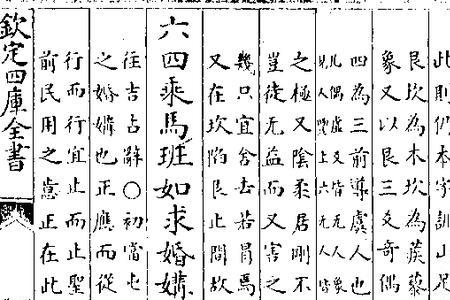 此則仍本字訓山足
艮坎為木坎為蒺藜
象又以艮三爻奇偶
四為三前導虞人也
偶虛皆无人象
上六
之極又陰柔居剛不
豈徒无益而又害之
幾只宜舍去若冒焉
又在坎陷艮止間故
六四乘馬班如求婚媾
往吉占辭○初當屯
之婚媾也正應而從
行而行宜止而止聖
前民用之意正在此
欽定四庫全書